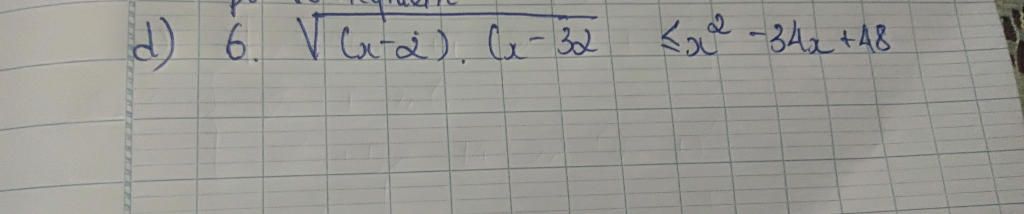 d) 6. √(x-2).(x-32 ≤x² -34x+48